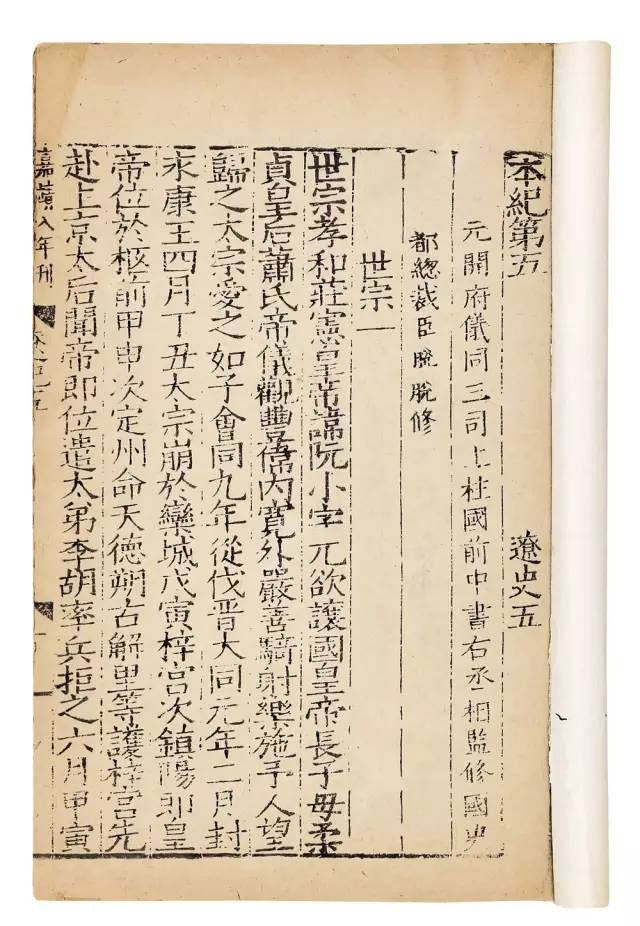 本紀第五 遼史五
元開府儀同三司上柱國前中書右丞相監修國史
都總裁臣脫脫修
世宗一
世宗孝和莊憲皇帝諱阮小字兀欲讓國皇帝長子母柔
貞皇后蕭氏帝儀觀豐偉內寬外嚴善騎射樂施予人望
歸之太宗愛之如子會同九年從伐晉大同元年二月封
永康王四月丁丑太宗崩於欒城戊寅梓宮次鎮陽即皇
帝位於柩前甲申次定州命天德朔古解里等護梓宮先
赴上京太后聞帝即位遣太第李胡率兵拒之六月甲寅
嘉靖八年刊